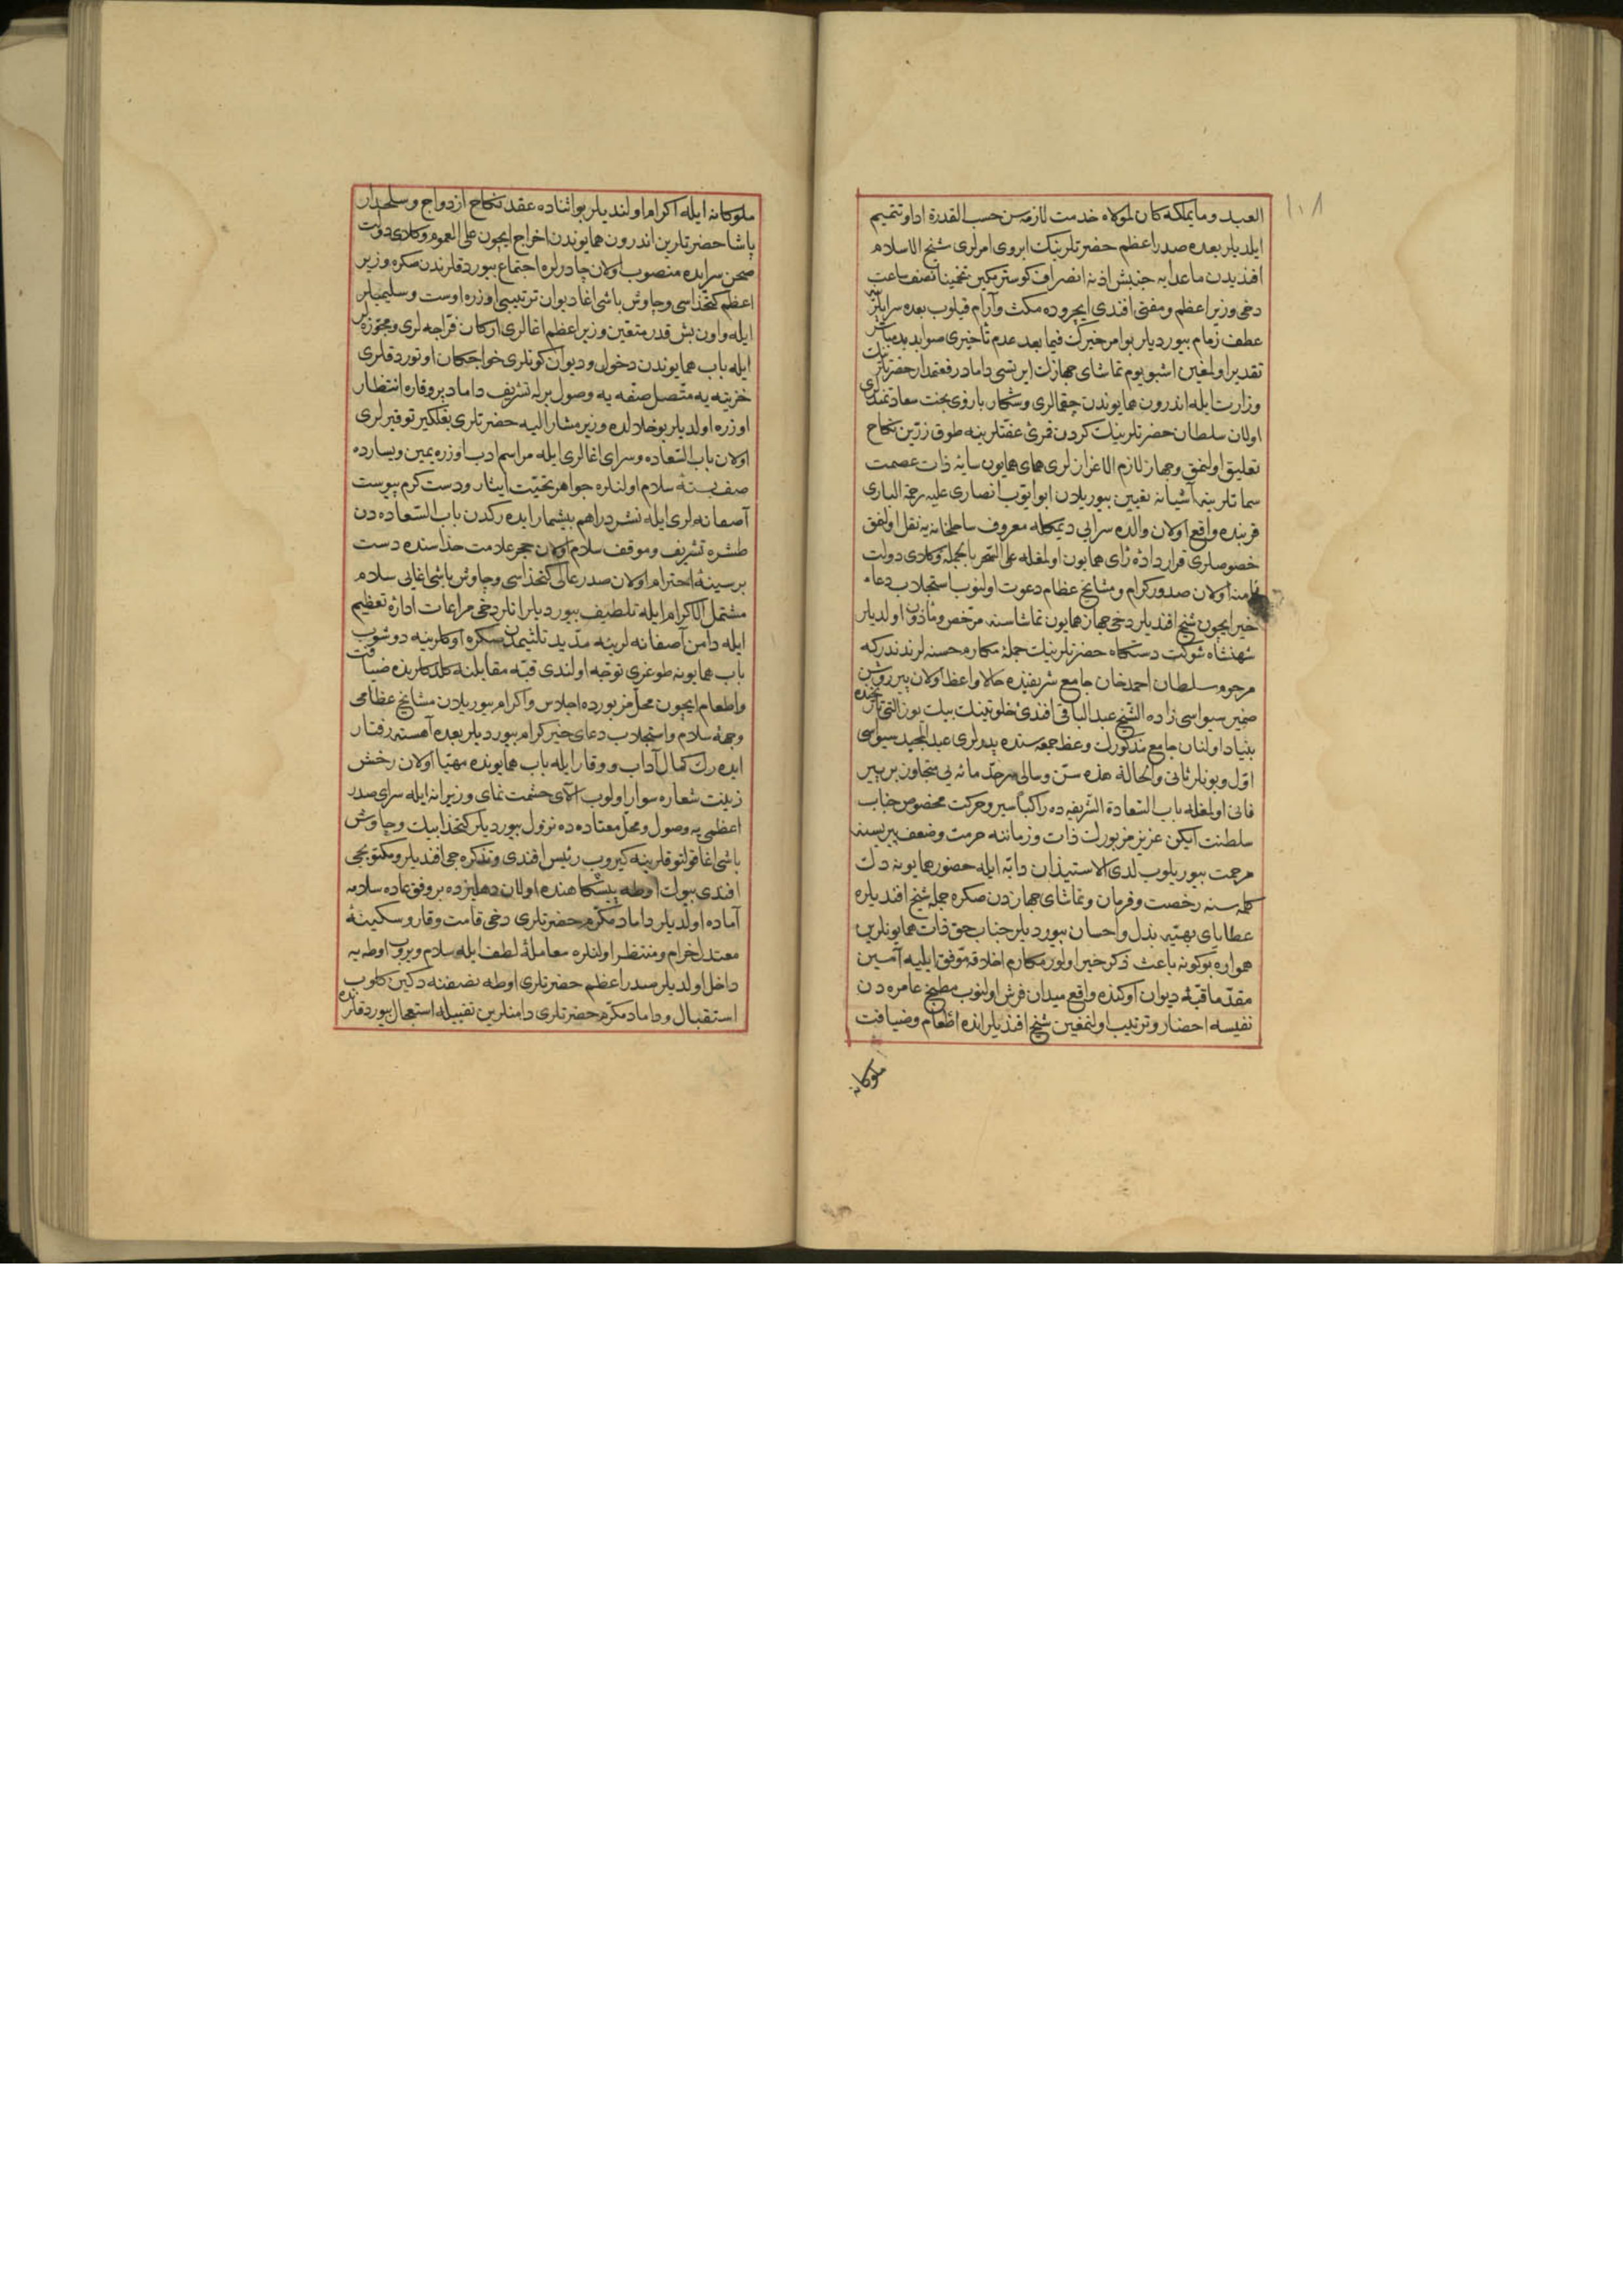 ١٠٨
العبد وما يملكه كان لمولاه خدمت لازمه سن حسب القدرة ادا و تتميم
ايلديلر بعده صدر اعظم حضرتلرينك ابروى امرلرى شيخ الاسلام
افنديدن ماعدايه جنبش اذنه انصراف كوسترمكين تخمينا نصف ساعت
دخى وزير اعظم ومفتى افندى ايچروده مكث وآرام قيلوب بعده سرايلرينه
عطف زمام بيورديلر بو امر خيرك فيما بعد عدم تأخيرى صوابديد
تقدير اولمغين اشبو يوم تماشاى جهازك ايرتسى داماد رفعتمدار حضرتلرينك
وزارت ايله اندرون همايوندن چقمالرى وشكار بازوى بخت سعادتمندلرى
اولان سلطان حضرتلرينك كردن قمرئ عفتلرينه طوق زرين نكاح
تعليق اولنمق وجهاز لازم الاعزازلرى هماى همايون سايۀ ذات عصمت
سماتلرينه آشيانه تعيين بيوريلان ابو ايوب انصارى عليه رحمة البارى
قربنده واقع اولان والده سرايى ديمكله معروف ساحلخانه يه نقل اولنمق
خصوصلرى قرارداده راى همايون اولمغله على السحر بالجمله وكلاى دولت
اولان صدور كرام ومشايخ عظام دعوت اولنوب استجلاب دعاء
خير ايچون شيخ افنديلر دخى جهاز همايون تماشاسنه مرخص ومأذون اولديلر
شهنشاه شوكت دستكاه حضرتلرينك جملۀ مكارم محسنه لرندندركه
مرحوم سلطان احمد خان جامع شريفنده حالا واعظ اولان پير روشن
ضمير سيواسى زاده الشيخ عبد الباقى افندئ خلوتينك بيك يوز التى تاريخنده
بنياد اولنان جامع مذكورك وعظ جمعه سنده پدرلرى عبد المجيد سيواسى
اول وبونلر ثانى والحالة هذه سن وسالى سرحد مائه يى متجاوز بر پير
فانى اولمغله باب السعادة الشريفه ده راكباً سير وحركت مخصوص جناب
سلطنت ايكن عزيز مزبورك ذات وزماننه حرمت وضعف پيريسنه
مرحمت بيوريلوب لدى الاستيذان دابه ايله حضور همايونه دك
كلمه سنه رخصت وفرمان وتماشاى جهازدن صكره جمله شيخ افنديلره
عطاياى بهيه بذل واحسان بيورديلر جناب حق ذات همايونلرين
همواره بوكونه باعث ذكر خير اولور مكارم اخلاقه موفق ايليه آمين
مقدما قبۀ ديوان اوكنده واقع ميدان فرش اولنوب مطبخ عامره دن
نفيسه احضار وترتيب اولنمغين شيخ افنديلر انده اطعام وضيافت
ملوكانه
ملوكانه ايله اكرام اولنديلر بو اثناده عقد نكاح ازدواج وسلحدار
پاشا حضرتلرين اندرون همايوندن اخراج ايچون على العموم وكلاى دولت
صحن سرايده منصوب اولان چادرلره اجتماع بيوردقلرندن صكره وزير
اعظم كتخداسى وچاوش باشى اغا ديوان ترتيبى اوزره اوست وسليميلر
ايله واون بش قدر متعين وزير اعظم اغالرى اركان قراجه لرى ومجوزه لر
ايله باب همايوندن دخول وديوان كونلرى خواجكان اوتوردقلرى
خزينه يه متصل صفه يه وصول برله تشريف داماد پر وقاره انتظار
اوزره اولديلر بو خلالده وزير مشار اليه حضرتلرى بغلكير توقيرلرى
اولان باب السعاده وسراى اغالرى ايله مراسم ادب اوزره يمين ويسارده
صف بستۀ سلام اولنلره جواهر تحيت ايثار ودست كرم پيوست
آصفانه لرى ايله نشر دراهم بيشمار ايده ركدن باب السعاده دن
طشره تشريف وموقف سلام اولان حجر علامت حذاسنده دست
بر سينۀ احترام اولان صدر عالى كتخداسى وچاوش باشى اغايى سلام
مشتمل الاكرام ايله تلطيف بيورديلر انلر دخى مراعات ادارۀ تعظيم
ايله دامن آصفانه لرينه مديد تلثيمدن صكره اوكلرينه دوشوب
باب همايونه طوغرى توجه اولندى قبه مقابلنه كلدكلرنده ضيافت
واطعام ايچون محل مزبورده اجلاس واكرام بيوريلان مشايخ عظامى
وجهۀ سلام واستجلاب دعاى خير كرام بيورديلر بعده آهسته رفتار
ايده رك كمال آداب ووقار ايله باب همايونده مهيا اولان رخش
زينت شعاره سوار اولوب آلاى حشمت نماى وزيرانه ايله سراى صدر
اعظمى يه وصول ومحل معتاده ده نزول بيورديلر كتخدا بيك وچاوش
باشى اغا قولتوقلرينه كيروب رئيس افندى وتذكره جى افنديلر ومكتوبجى
افندى بيوك اوطه پيشكاهنده اولان دهليزده بر وفق عاده سلامه
آماده اولديلر داماد مكرم حضرتلرى دخى قامت وقار وسكينۀ
معتدل خرام ومنتظر اولنلره معاملۀ لطف ايله سلام ويروب اوطه يه
داخل اولديلر صدر اعظم حضرتلرى اوطه نصفنه دكين كلوب
استقبال وداماد مكرم حضرتلرى دامنلرين تقبيله استعجال بيوردقلرنده